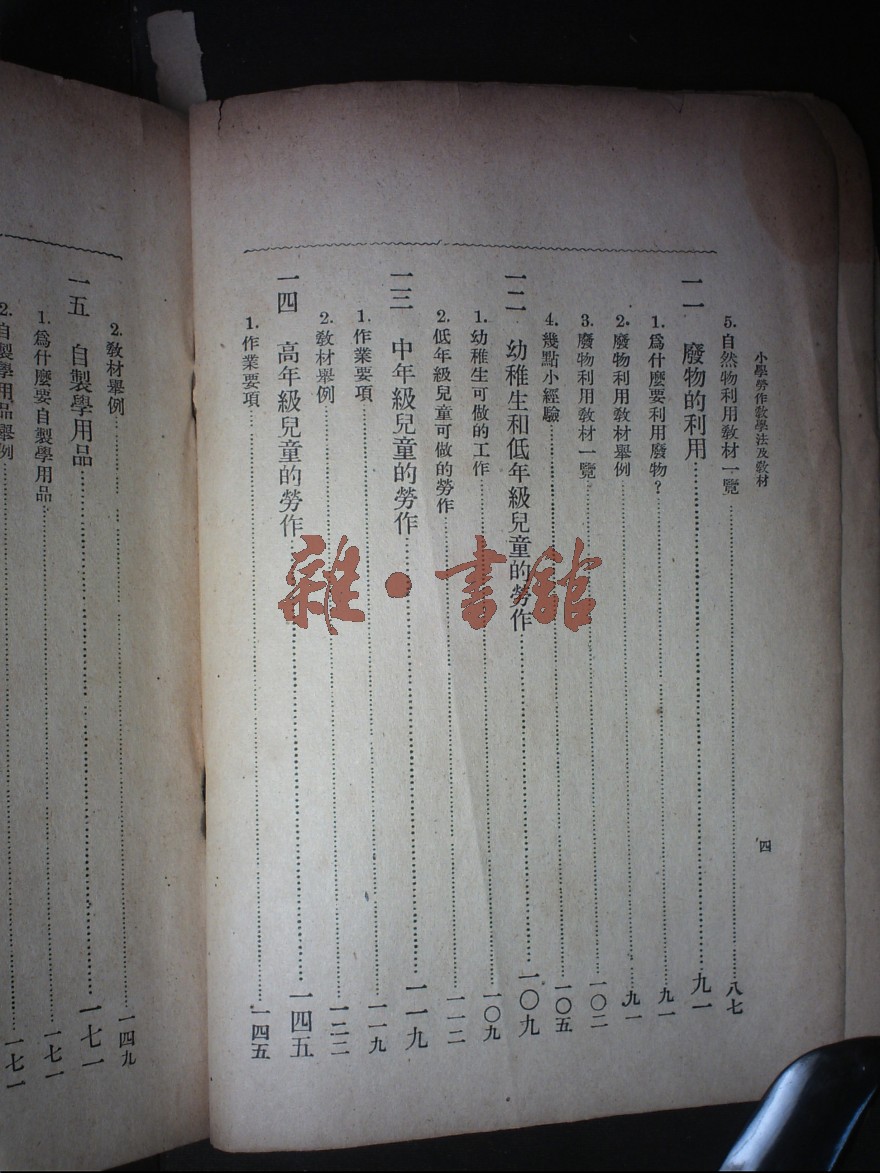 小學勞作教學法及教材
四
5.自然物利用教材一覽……八七
一一 廢物的利用……九一
1.爲什麼要利用廢物?……九一
2.廢物利用教材舉例……九一
3.廢物利用教材一覽……一〇二
4.幾點小經驗……一〇五
一二 幼稚生和低年級兒童的勞作……一〇九
1.幼稚生可做的工作……一〇九
2.低年級兒童可做的勞作……一一二
一三 中年級兒童的勞作……一一九
1.作業要項……一一九
2.教材舉例……一二二
一四 高年級兒童的勞作……一四五
1.作業要項……一四五
2.教材舉例……一四九
一五 自製學用品……一七一
1.爲什麼要自製學用品……一七一
2.自製學用品舉例……一七一
雜·書館